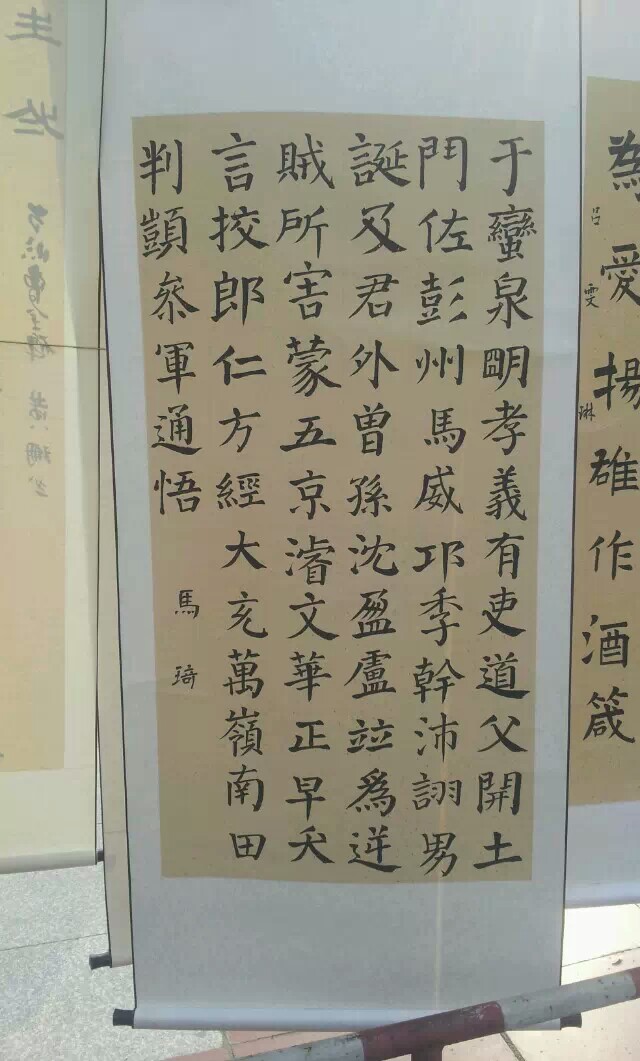 為愛揚雄作酒箴
吕雯琳
于蠻泉眀孝義有吏道父開土
門佐彭州馬威邛季幹沛詡男
誕及君外曽孫沈盈盧竝爲逆
賊所害蒙五京濬文華正早夭
言挍郎仁方經大充萬嶺南田
判顗叅軍通悟
馬琦